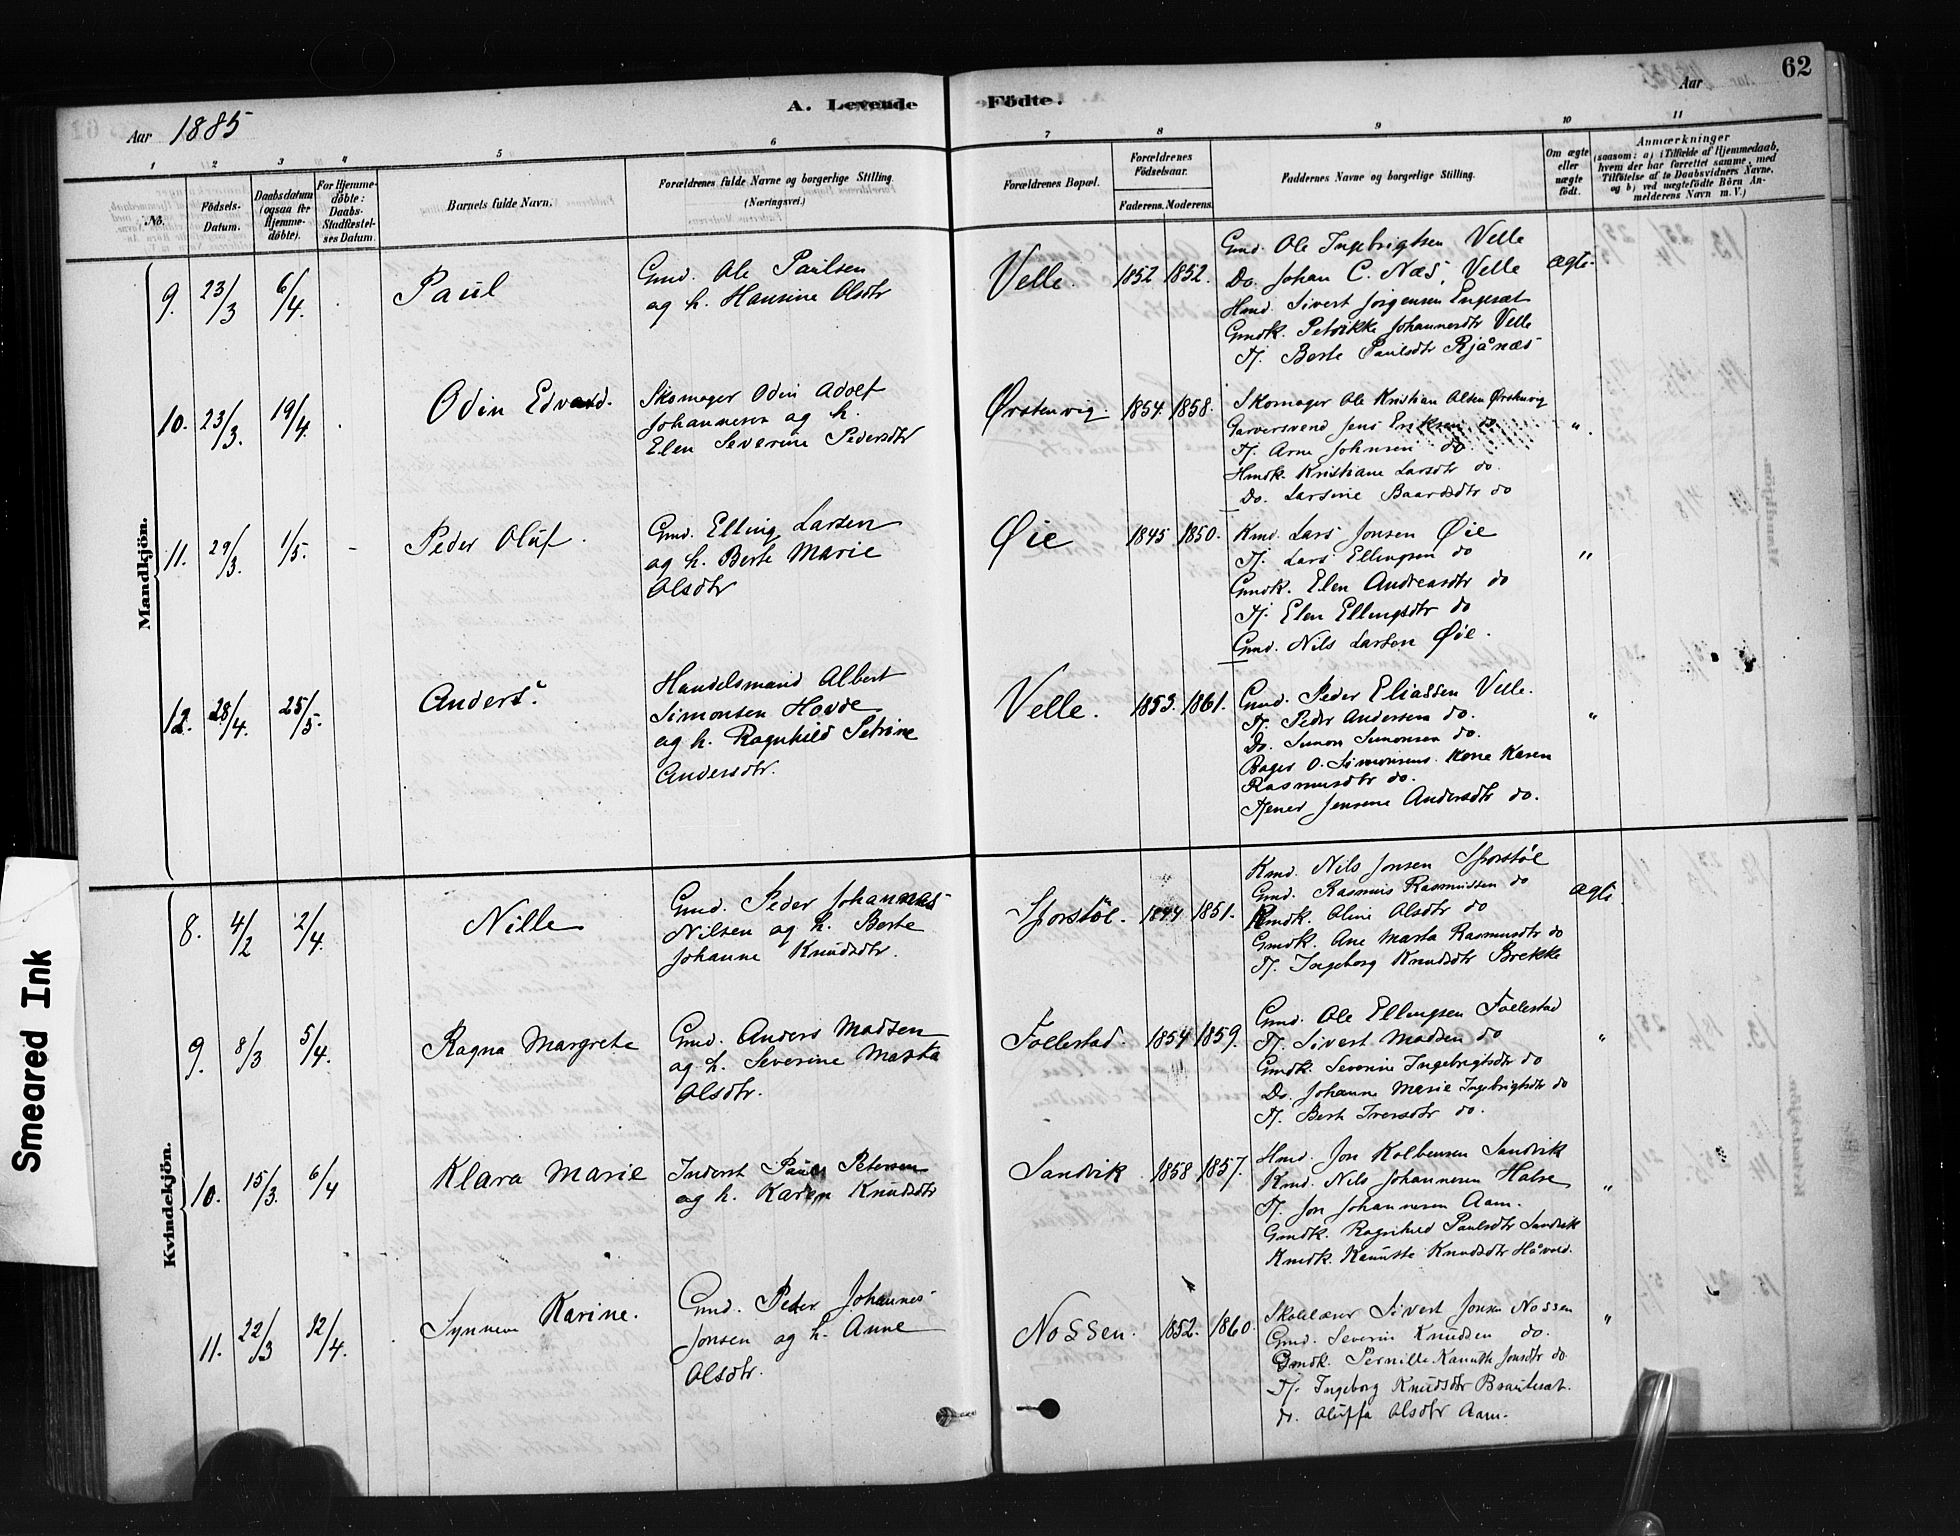 62
A. Levende Födte.
Aar 1885
Aar
1 2 3 4 5 6 7 8 9 10 11
No.
Födsels-Datum.
Daabsdatum (ogsaa for Hjemme-döbte).
For Hjemme-döbte: Daabs-Stadfæstel-ses Datum.
Barnets fulde Navn.
Forældrenes fulde Navne og borgerlige Stilling. (Næringsvei.)
Forældrenes Bopæl.
Forældrenes Födselsaar.
Faderens. Moderens.
Faddernes Navne og borgerlige Stilling.
Om ægte eller uægte födt.
Anmærkninger
(saasom: a) i Tilfælde af Hjemmedaab, hvem der har forrettet samme, med Tilföielse af to Daabsvidners Navne, og b) ved uægtefödte Börn An-melderens Navn m. V.)
Mandkjön.
9. 23/3 6/4. Paul
Gmd. Ole Paulsen
og h. Hansine Olsdtr
Velle. 1852 1852.
Gmd. Ole Ingebrigtsen Velle
Do. Johan C. Næs, Velle
Hmd. Sivert Jörgensen Engeset
Gmdk. Petrikke Johannesdtr Velle
Tj. Berte Paulsdtr Rjånæs
ægte.
10. 23/3. 19/4. Odin Edvard.
Skomager Odin Adolf
Johannesen og h.
Elen Severine Pedersdtr
Ørstenvig. 1854. 1858.
Skomager Ole Kristian Olsen Ørstenvig
Garversvend Jens Eriksen do
Tj. Arne Johnsen do
Hmdk. Kristiane Larsdtr do.
Do. Larsine Baardsdtr do
"
11. 29/3. 1/5. - Peder Oluf.
Gmd. Elling Larsen
og h. Berte Marie
Olsdtr
Øie 1845 1850.
Kmd. Lars Jonsen Øie
Tj. Lars Ellingsen do
Gmdk. Elen Andreasdtr do
Tj. Elen Ellingsdtr do
Gmd. Nils Larsen Øie.
"
12. 28/4. 25/5. Anders.
Handelsmand Albert
Simonsen Hovde
og h. Ragnhild Petrine
Andersdtr.
Velle. 1853. 1861.
Gmd. Peder Eliassen Velle.
Tj. Peder Andersen do.
Do. Simon Simonsen do.
Bager O. Simonsens Kone Karen
Rasmusdtr do.
Tjener Jensine Andersdtr do.
"
Kvindekjön.
8. 4/2 2/4. Nille
Gmd. Peder Johannes
Nilsen og h. Berte
Johanne Knudsdtr.
Sporstöl. 1844 1851.
Kmd. Nils Jonsen Sporstöl
Gmd. Rasmus Rasmussen do
Kmdk. Oline Olsdtr do
Gmdk. Ane Marta Rasmusdtr do
Tj. Ingeborg Knudsdtr Brekke
ægte
9. 8/3 5/4. Ragna Margrete
Gmd. Anders Madsen
og h. Severine Marta
Olsdtr.
Follestad. 1854 1859.
Gmd. Ole Ellingsen Follestad
Tj. Sivert Madsen do
Gmdk. Severine Ingebrigtsdtr do
Do. Johanne Marie Ingebrigtsdtr do
Tj. Berte Iversdtr do.
"
10. 15/3. 6/4 Klara Marie
Inderst Paul Petersen
og h. Karen Knudsdtr
Sandvik 1858 1857.
Hmd. Jon Kolbensen Sandvik
Kmd. Nils Johannesen Halse
Tj. Jon Johannesen Aam.
Gmdk. Ragnhild Paulsdtr Sandvik
Kmdk. Knutte Knudsdtr Håvold.
"
11. 22/3 12/4. Synneve Karine.
Gmd. Peder Johannes
Jonsen og h. Anne
Olsdtr.
Nossen. 1852. 1860.
Skolelærer Sivert Jonsen Nossen
Gmd. Severin Knudsen do.
Gmdk. Pernille Kanutte Jonsdtr do.
Tj. Ingeborg Knudsdtr Brauteset.
do. Oluffa Olsdtr Aam.
"
Smeared Ink